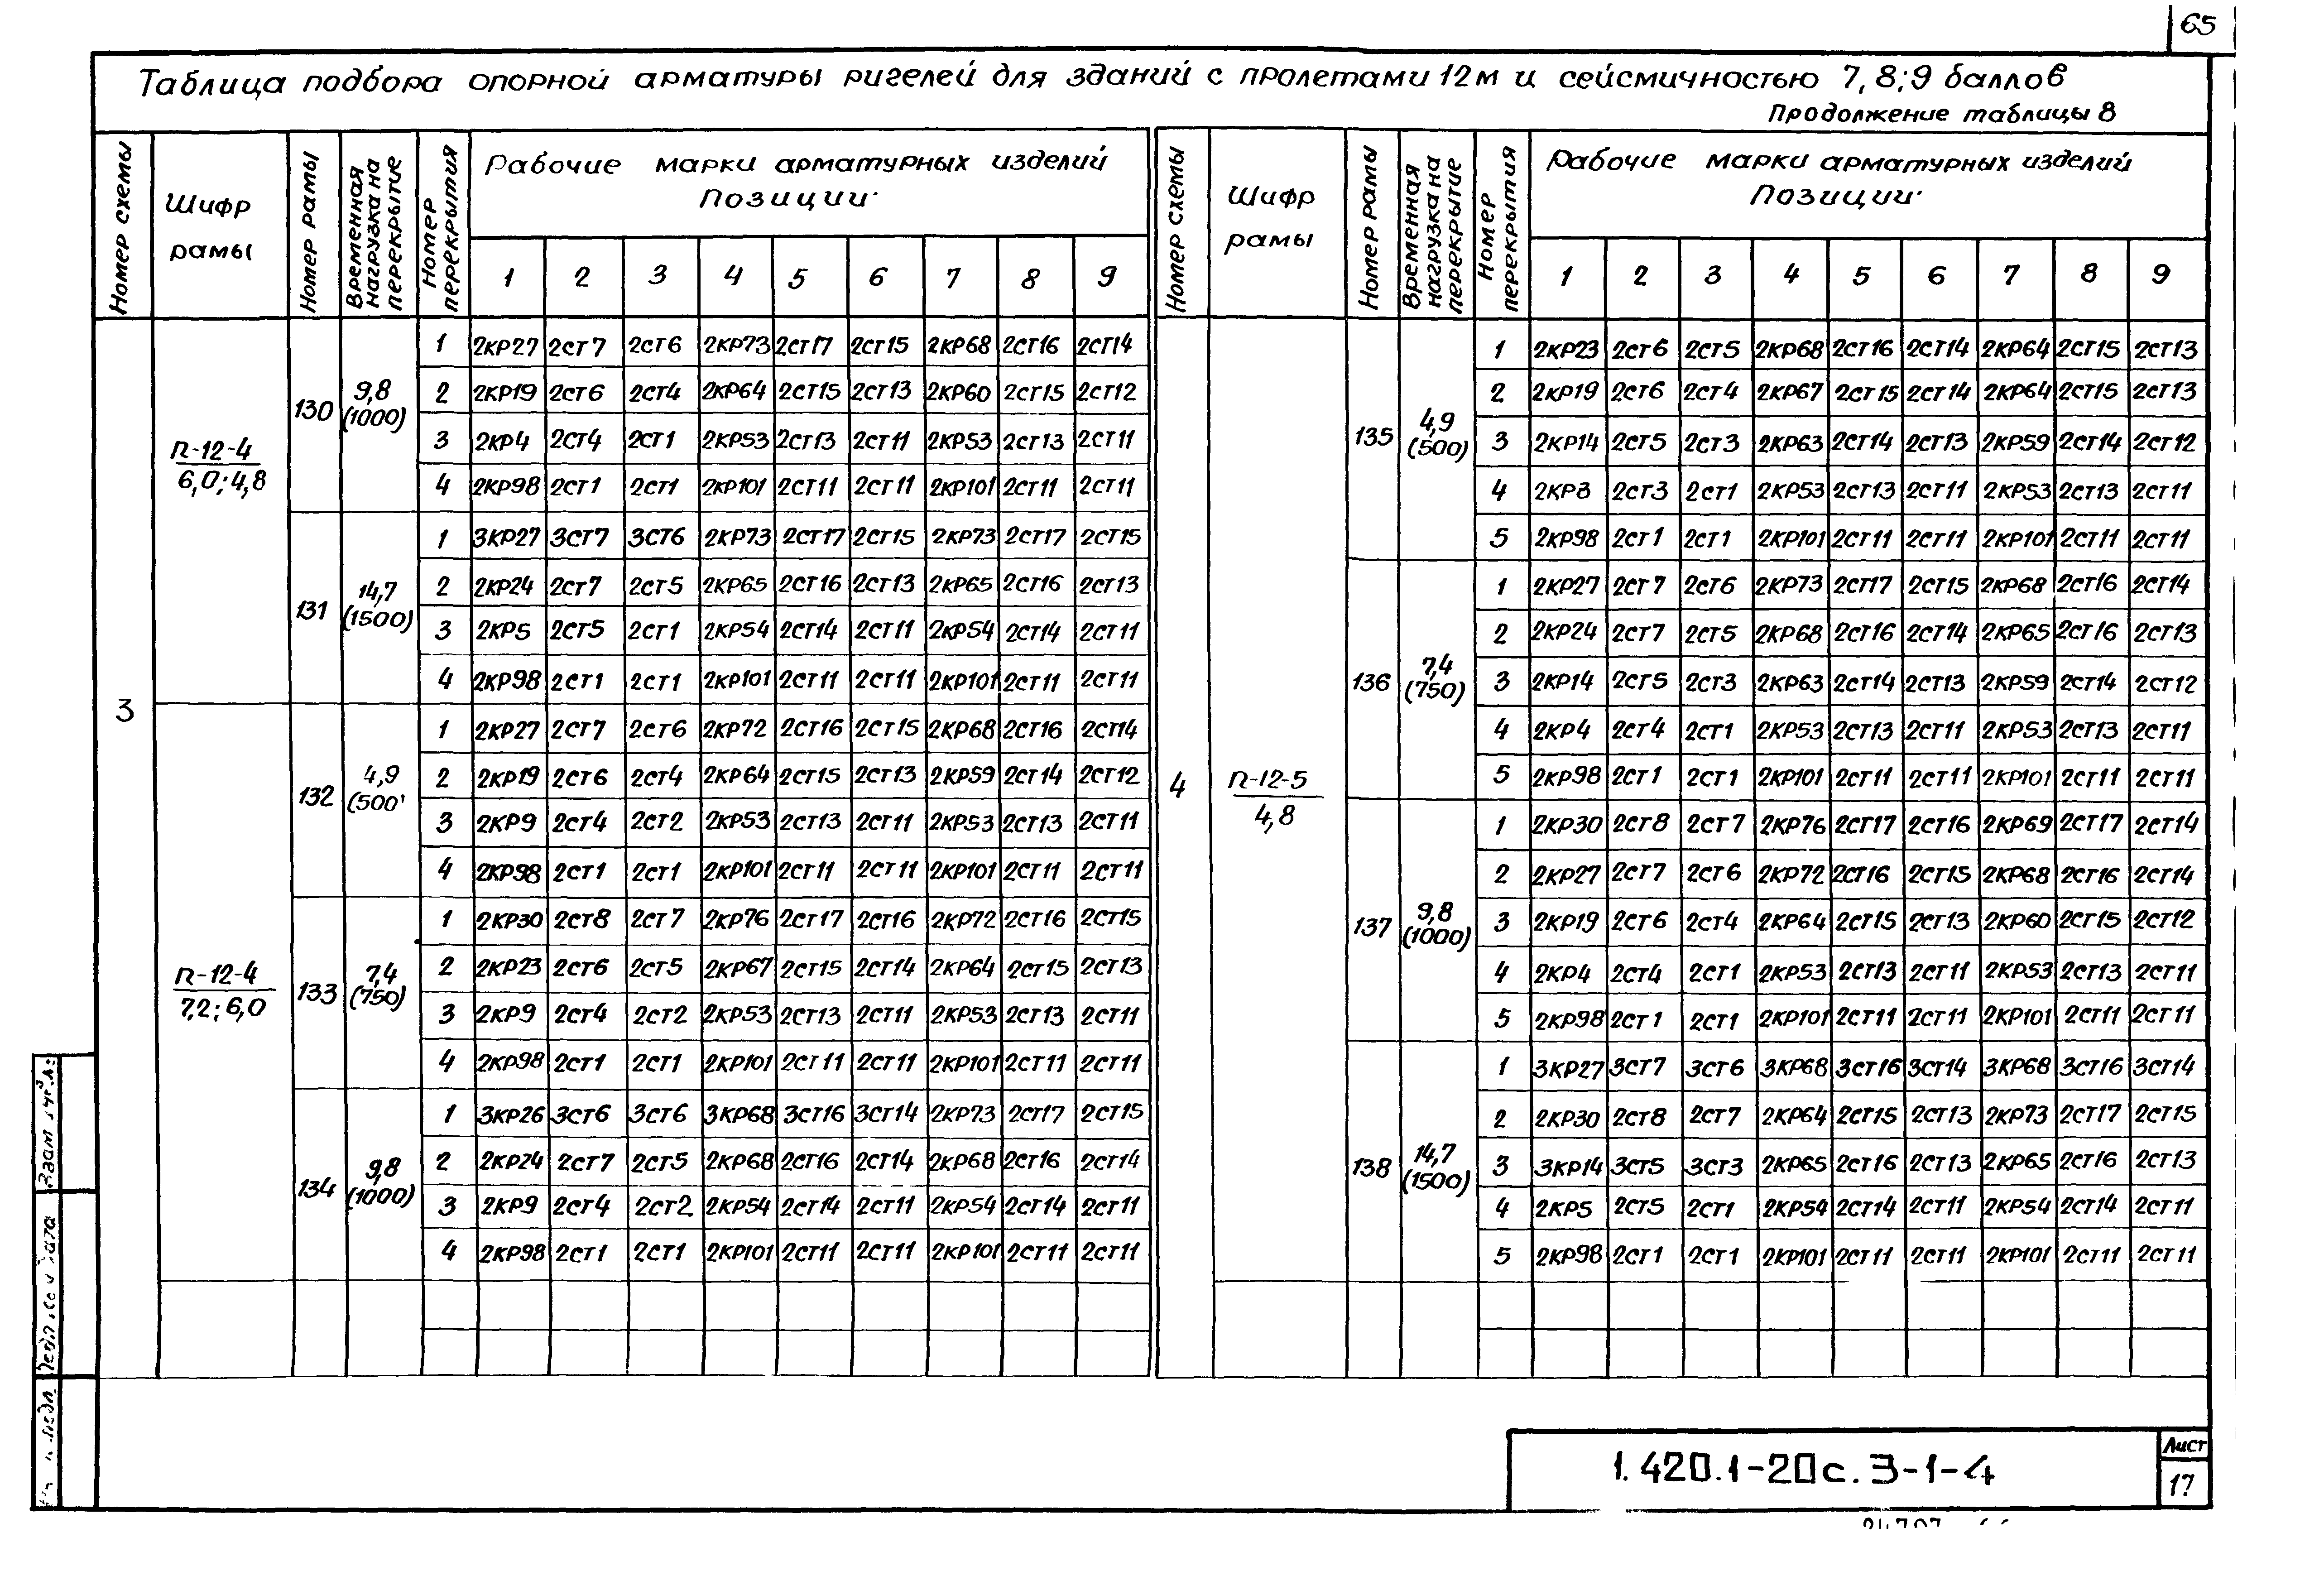 65
Таблица подбора опорной арматуры ригелей для зданий с пролетами 12м и сейсмичностью 7, 8; 9 баллов
Продолжение таблицы 8
Номер схемы
Шифр рамы
Номер рамы
Временная нагрузка на перекрытие
Номер перекрытия
Рабочие марки арматурных изделий
Позиции
1 2 3 4 5 6 7 8 9
3
П-12-4
6,0; 4,8
130
9,8
(1000)
1 2КР27 2СТ7 2СТ6 2КР73 2СТ17 2СТ15 2КР68 2СТ16 2СТ14
2 2КР19 2СТ6 2СТ4 2КР64 2СТ15 2СТ13 2КР60 2СТ15 2СТ12
3 2КР4 2СТ4 2СТ1 2КР53 2СТ13 2СТ11 2КР53 2СТ13 2СТ11
4 2КР98 2СТ1 2СТ1 2КР101 2СТ11 2СТ11 2КР101 2СТ11 2СТ11
131
14,7
(1500)
1 3КР27 3СТ7 3СТ6 2КР73 2СТ17 2СТ15 2КР73 2СТ17 2СТ15
2 2КР24 2СТ7 2СТ5 2КР65 2СТ16 2СТ13 2КР65 2СТ16 2СТ13
3 2КР5 2СТ5 2СТ1 2КР54 2СТ14 2СТ11 2КР54 2СТ14 2СТ11
4 2КР98 2СТ1 2СТ1 2КР101 2СТ11 2СТ11 2КР101 2СТ11 2СТ11
П-12-4
7,2; 6,0
132
4,9
(500
1 2КР27 2СТ7 2СТ6 2КР72 2СТ16 2СТ15 2КР68 2СТ16 2СТ14
2 2КР19 2СТ6 2СТ4 2КР64 2СТ15 2СТ13 2КР59 2СТ14 2СТ12
3 2КР9 2СТ4 2СТ2 2КР53 2СТ13 2СТ11 2КР53 2СТ13 2СТ11
4 2КР98 2СТ1 2СТ1 2КР101 2СТ11 2СТ11 2КР101 2СТ11 2СТ11
133
7,4
(750)
1 2КР30 2СТ8 2СТ7 2КР76 2СТ17 2СТ16 2КР72 2СТ16 2СТ15
2 2КР23 2СТ6 2СТ5 2КР67 2СТ15 2СТ14 2КР64 2СТ15 2СТ13
3 2КР9 2СТ4 2СТ2 2КР53 2СТ13 2СТ11 2КР53 2СТ13 2СТ11
4 2КР98 2СТ1 2СТ1 2КР101 2СТ11 2СТ11 2КР101 2СТ11 2СТ11
134
9,8
(1000)
1 3КР26 3СТ6 3СТ6 3КР68 3СТ16 3СТ14 2КР73 2СТ17 2СТ15
2 2КР24 2СТ7 2СТ5 2КР68 2СТ16 2СТ14 2КР68 2СТ16 2СТ14
3 2КР9 2СТ4 2СТ2 2КР54 2СТ14 2СТ11 2КР54 2СТ14 2СТ11
4 2КР98 2СТ1 2СТ1 2КР101 2СТ11 2СТ11 2КР101 2СТ11 2СТ11
Номер схемы
Шифр рамы
Номер рамы
Временная нагрузка на перекрытие
Номер перекрытия
Рабочие марки арматурных изделий
Позиции
1 2 3 4 5 6 7 8 9
4
П-12-5
4,8
135
4,9
(500)
1 2КР23 2СТ6 2СТ5 2КР68 2СТ16 2СТ14 2КР64 2СТ15 2СТ13
2 2КР19 2СТ6 2СТ4 2КР67 2СТ15 2СТ14 2КР64 2СТ15 2СТ13
3 2КР14 2СТ5 2СТ3 2КР63 2СТ14 2СТ13 2КР59 2СТ14 2СТ12
4 2КР3 2СТ3 2СТ1 2КР53 2СТ13 2СТ11 2КР53 2СТ13 2СТ11
5 2КР98 2СТ1 2СТ1 2КР101 2СТ11 2СТ11 2КР101 2СТ11 2СТ11
136
7,4
(750)
1 2КР27 2СТ7 2СТ6 2КР73 2СТ17 2СТ15 2КР68 2СТ16 2СТ14
2 2КР24 2СТ7 2СТ5 2КР68 2СТ16 2СТ14 2КР65 2СТ16 2СТ13
3 2КР14 2СТ5 2СТ3 2КР63 2СТ14 2СТ13 2КР59 2СТ14 2СТ12
4 2КР4 2СТ4 2СТ1 2КР53 2СТ13 2СТ11 2КР53 2СТ13 2СТ11
5 2КР98 2СТ1 2СТ1 2КР101 2СТ11 2СТ11 2КР101 2СТ11 2СТ11
137
9,8
(1000)
1 2КР30 2СТ8 2СТ7 2КР76 2СТ17 2СТ16 2КР69 2СТ17 2СТ14
2 2КР27 2СТ7 2СТ6 2КР72 2СТ16 2СТ15 2КР68 2СТ16 2СТ14
3 2КР19 2СТ6 2СТ4 2КР64 2СТ15 2СТ13 2КР60 2СТ15 2СТ12
4 2КР4 2СТ4 2СТ1 2КР53 2СТ13 2СТ11 2КР53 2СТ13 2СТ11
5 2КР98 2СТ1 2СТ1 2КР101 2СТ11 2СТ11 2КР101 2СТ11 2СТ11
138
14,7
(1500)
1 3КР27 3СТ7 3СТ6 3КР68 3СТ16 3СТ14 3КР68 3СТ16 3СТ14
2 2КР30 2СТ8 2СТ7 2КР64 2СТ15 2СТ13 2КР73 2СТ17 2СТ15
3 3КР14 3СТ5 3СТ3 2КР65 2СТ16 2СТ13 2КР65 2СТ16 2СТ13
4 2КР5 2СТ5 2СТ1 2КР54 2СТ14 2СТ11 2КР54 2СТ14 2СТ11
5 2КР98 2СТ1 2СТ1 2КР101 2СТ11 2СТ11 2КР101 2СТ11 2СТ11
1.420.1-20с.3-1-4
Лист
17